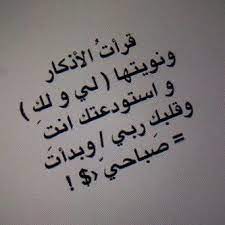 قرأتُ الأذكار
ونويتها ( لي و لكِ )
و استودعتك انتَ
وقلبك ربي / وبدأتَ
= صَباحيَ <$ !